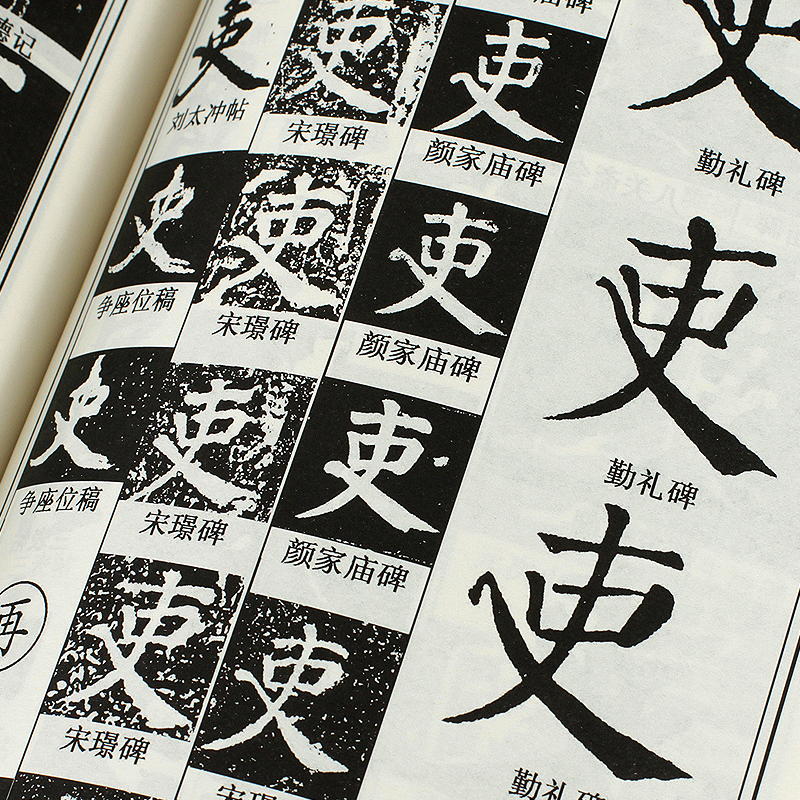 吏
勤礼碑
吏
勤礼碑
吏
勤礼碑
庙碑
吏
颜家庙碑
吏
颜家庙碑
吏
颜家庙碑
吏
宋璟碑
吏
宋璟碑
吏
宋璟碑
吏
宋璟碑
吏
宋璟碑
吏
刘太冲帖
吏
争座位稿
吏
争座位稿
再
德记